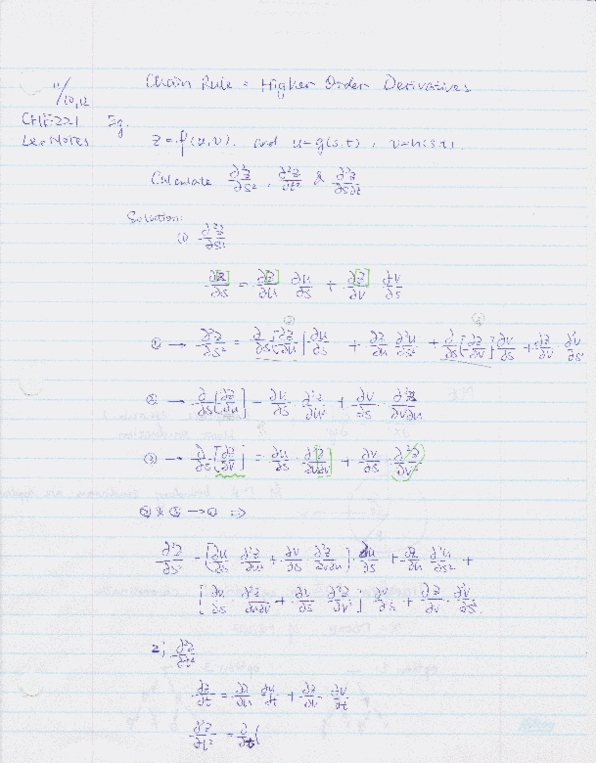 Chain Rule = Higher Order Derivatives
11/20,12
CHE221 Eg.
Lec Notes z = f(u,v). and u=g(s,t), v=h(s,t).
Calculate ∂²z/∂s², ∂²z/∂t² & ∂²z/∂s∂t
Solution:
(1) ∂²z/∂s²
∂z/∂s = ∂[z]/∂u ∂u/∂s + ∂[z]/∂v ∂v/∂s
① → ∂²z/∂s² = ∂/∂s[∂z/∂u] ∂u/∂s + ∂z/∂u ∂²u/∂s² + ∂/∂s[∂z/∂v] ∂v/∂s + ∂z/∂v ∂²v/∂s²
② → ∂/∂s[∂z/∂u] = ∂²z/∂u² + ∂v/∂s ∂²z/∂v∂u
③ → ∂/∂s [∂z/∂v] = ∂u/∂s ∂²z/∂u∂v + ∂v/∂s ∂²z/∂v²
② & ③ → ① =>
∂²z/∂s² = [∂u/∂s ∂²z/∂u² + ∂v/∂s ∂²z/∂v∂u] ∂u/∂s + ∂z/∂u ∂²u/∂s² +
[∂u/∂s ∂²z/∂u∂v + ∂v/∂s ∂²z/∂v²] ∂v/∂s + ∂z/∂v ∂²v/∂s²
2; ∂²z/∂t²
∂z/∂t = ∂z/∂u ∂u/∂t + ∂z/∂v ∂v/∂t
∂²z/∂t² = ∂/∂t(